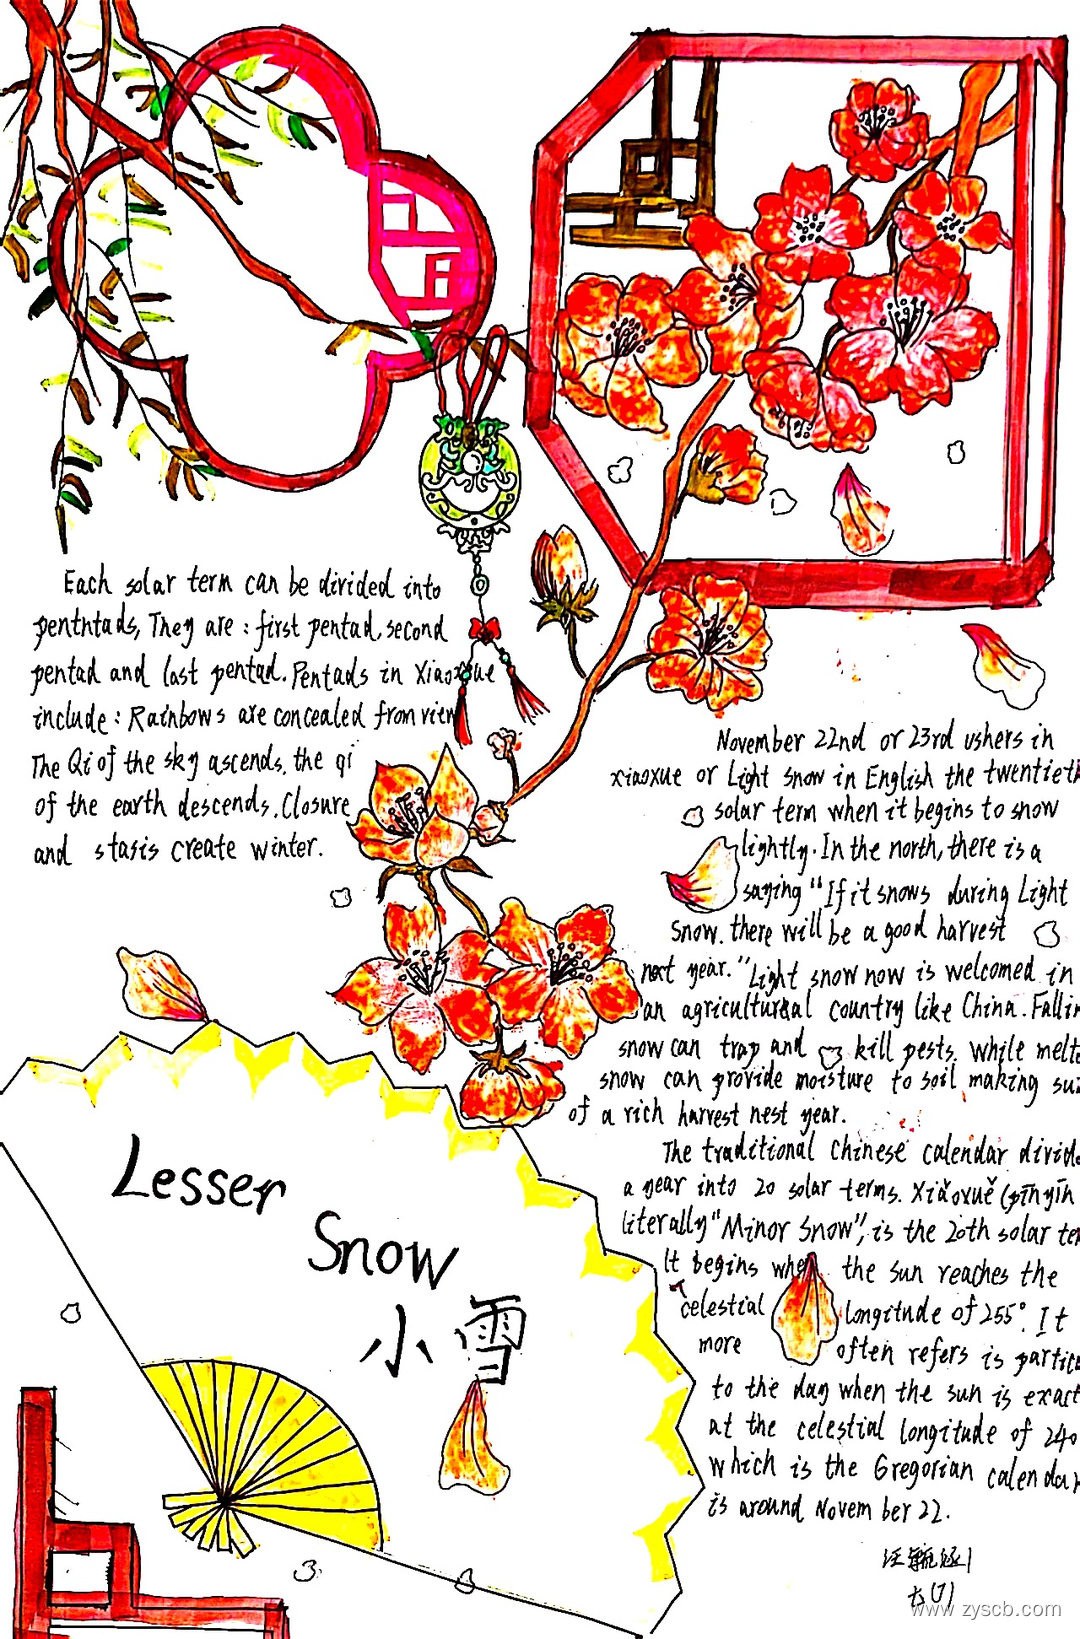 Each solar term can be divided into
pentntads, They are : first pentad, second
pentad and last pentad. Pentads in Xiaoxue
include : Rainbows are concealed from view
The Qi of the sky ascends. the qi
of the earth descends. Closure
and stasis create winter.
November 22nd or 23rd ushers in
xiaoxue or Light snow in English the twentieth
solar term when it begins to snow
lightly. In the north, there is a
saying "If it snows during Light
Snow. there will be a good harvest
next year." Light snow now is welcomed in
an agricultureal country like China. Fallin
snow can trap and kill pests. While melte
snow can provide moisture to soil making su
of a rich harvest nest year.
The traditional Chinese calendar divide
a year into 20 solar terms. Xiǎoxuě (pīnyīn
literally "Minor Snow", is the 20th solar te
It begins when the sun reaches the
celestial longitude of 255°. It
more often refers is partic
to the day when the sun is exact
at the celestial longitude of 240
which is the Gregorian calendar
is around November 22.
Lesser
Snow
小雪
www.zyscb.com